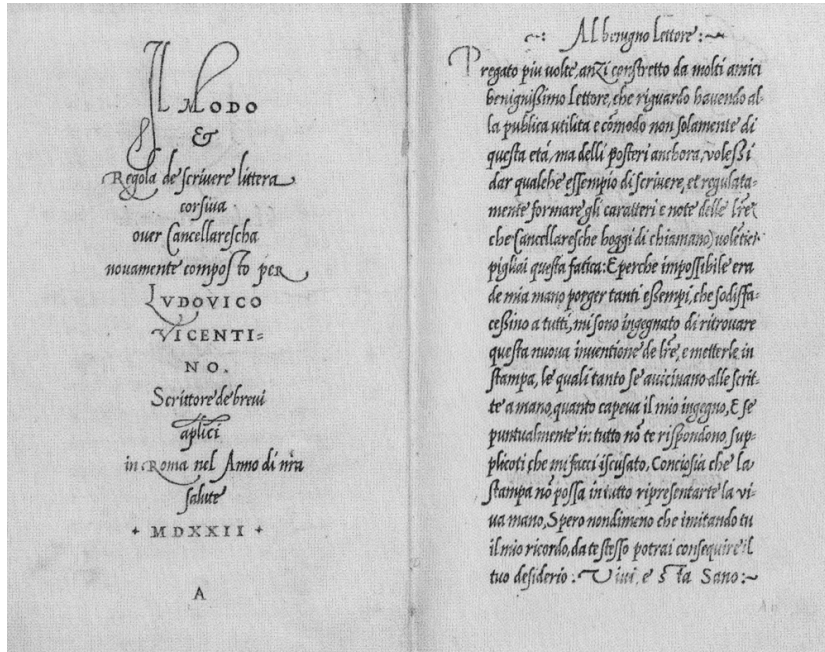 Il MODO
&
Regola de scrivere littera
corsiva
over Cancellarescha
novamente composto per
LVDOVICO
VICENTI=
NO.
Scrittore de brevi
aplici
in Roma nel Anno di nra
salute
+ MDXXII +
A
~: Al benigno lettore :~
Pregato piu volte, anzi constretto da molti amici
benignissimo Lettore, che riguardo havendo al-
la publica utilita e cõmodo non solamente di
questa etá, ma delli posteri anchora, volessi
dar qualche essempio di scrivere, et regulata-
mente formare gli caratteri e note delle lre
che Cancellaresche hoggi di chiamano) volẽtier
pigliai questa fatica: E perche impossibile era
de mia mano porger tanti essempi, che sodisfa-
cessino a tutti, mi sono ingegnato di ritrovare
questa nuova inventione de lre, e metterle in
stampa, le quali tanto se avicinano alle scrit-
te a mano, quanto capeva il mio ingegno, E se
puntualmente in tutto nõ te rispondono, sup-
plicoti che mi facci iscusato, Conciosia che la
stampa nõ possa in tutto ripresentarte la vi-
va mano, Spero nondimeno che imitando tu
il mio ricordo, da te stesso potrai consequire il
tuo desiderio : Vivi, e sta Sano :~